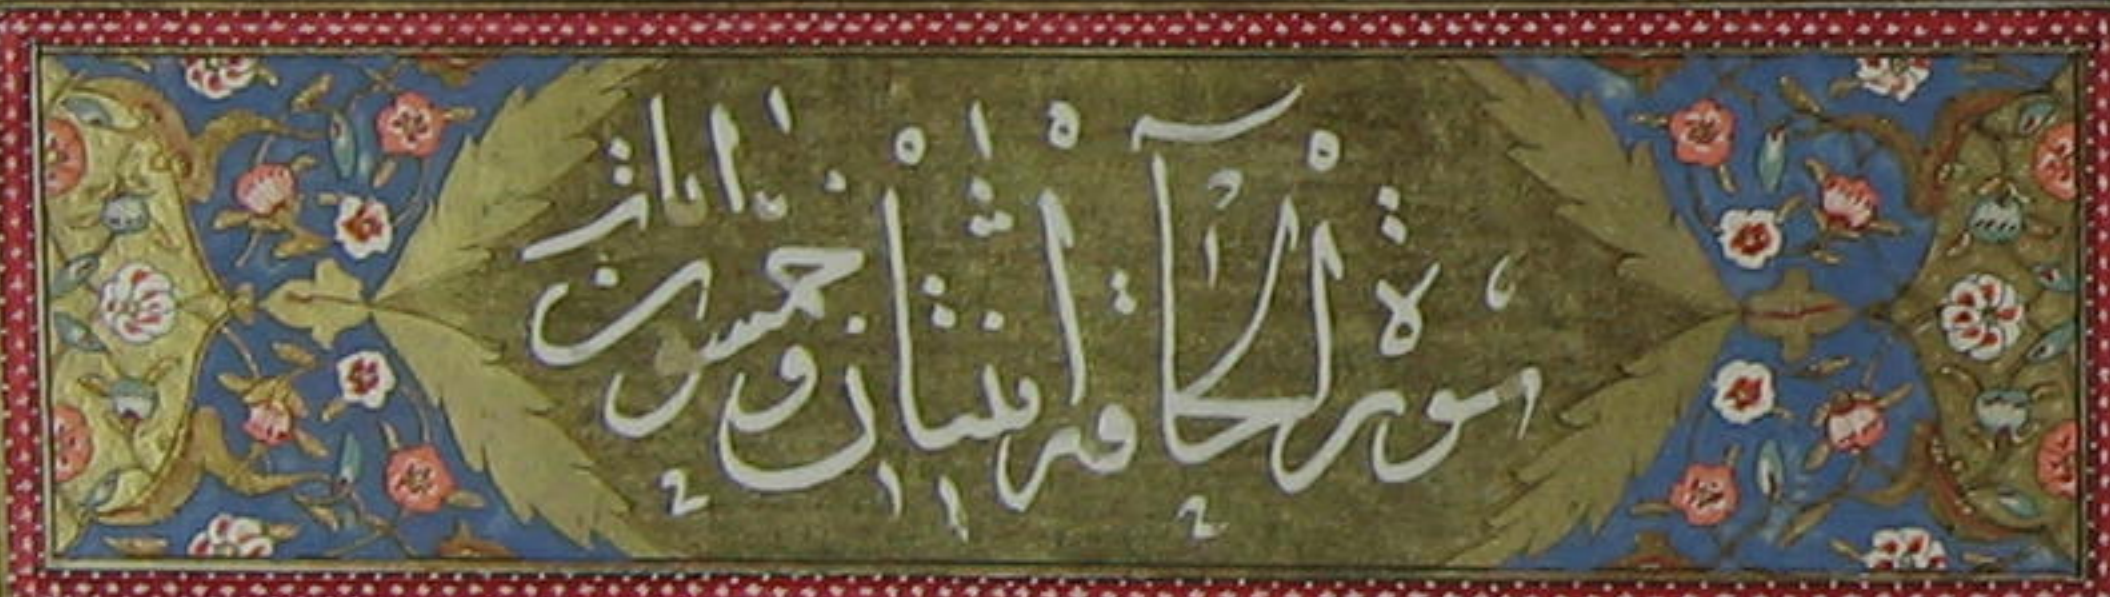 سورة الحآقة اثنتان وخمسون اية